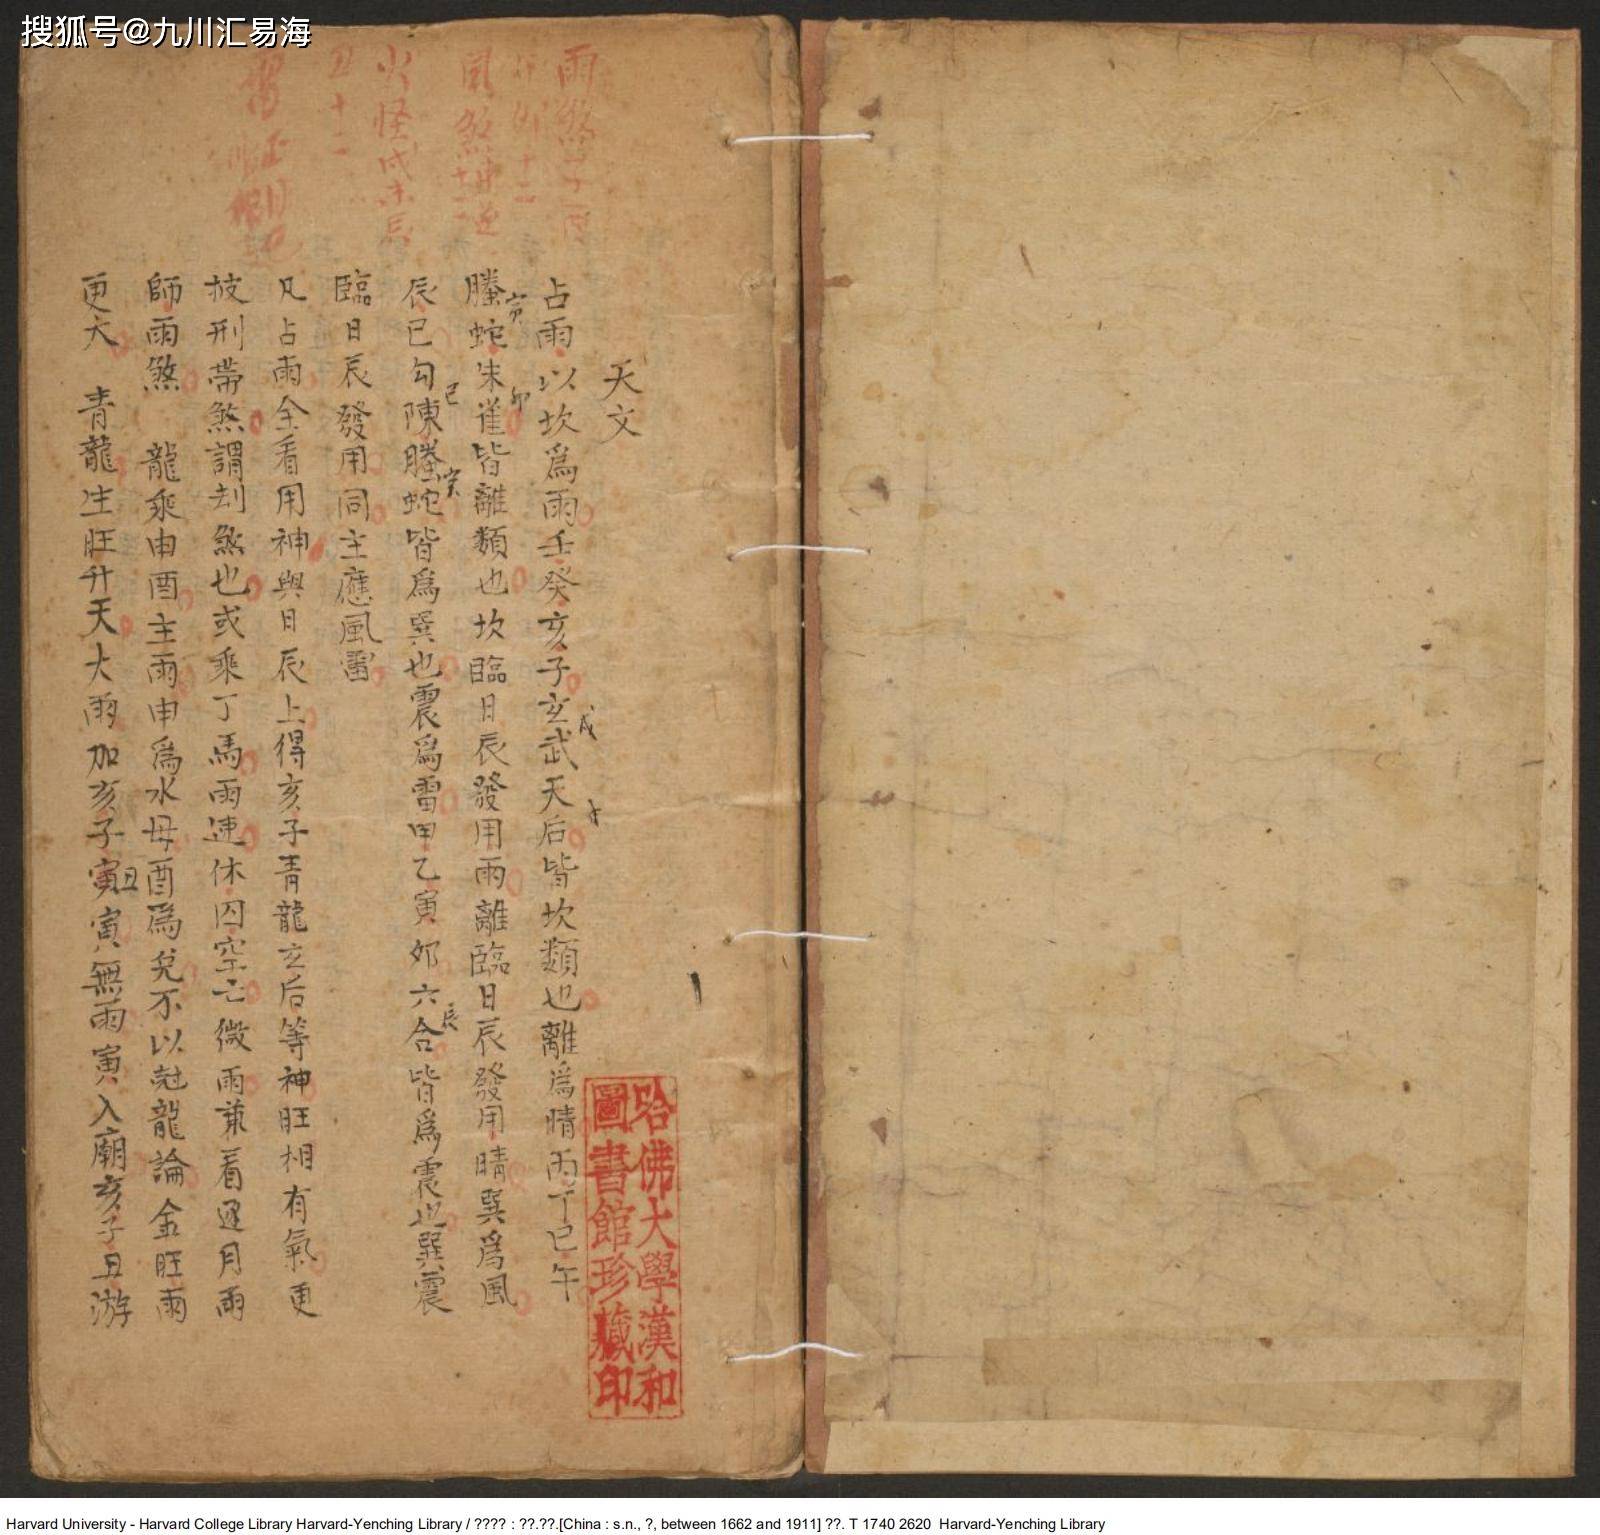 搜狐号@九川汇易海
雨煞子酉
卯十二
風煞申逆十二
火怪戌未辰
丑十二
雷
天文
占雨以坎爲雨壬癸亥子玄武天后皆坎類也離爲晴丙丁巳午
戌
螣蛇朱雀皆離類也坎臨日辰發用雨離臨日辰發用晴巽爲風
寅
卯
辰巳勾陳螣蛇皆爲巽也震爲雷甲乙寅卯六合皆爲震也巽震
巳
寅
辰
臨日辰發用同主應風雷
凡占雨全看用神與日辰上得亥子青龍玄后等神旺相有氣更
披刑帶煞謂刦煞也或乘丁馬雨速休囚空亡微雨兼看逐月雨
師雨煞 龍乘申酉主雨申爲水母酉爲兌不以尅龍論金旺雨
更大 青龍生旺升天大雨加亥子寅丑寅無雨寅入廟亥子丑游
哈佛大學漢和
圖書館珍藏印
Harvard University - Harvard College Library Harvard-Yenching Library / ???? : ??.??.[China : s.n., ?, between 1662 and 1911] ??. T 1740 2620 Harvard-Yenching Library